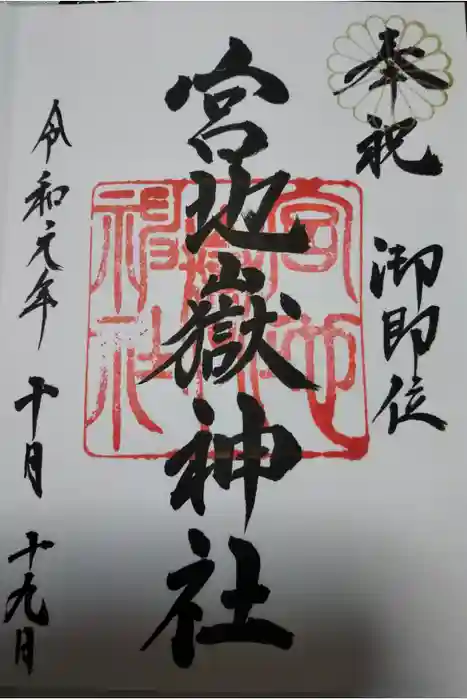 奉祝 御即位
宮地嶽神社
令和元年十月十九日
宮地
嶽
神社